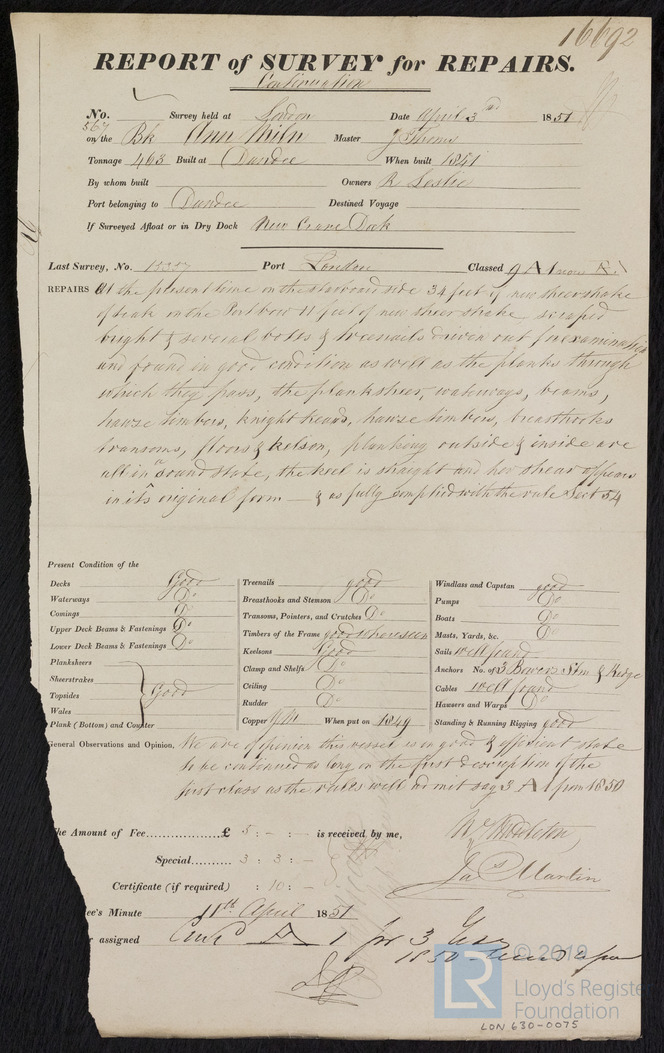 16692
REPORT of SURVEY for REPAIRS.
Continuation
No. 567 Survey held at London Date April 3rd 1851
on the Bk Ann Miln Master J Thoms
Tonnage 463 Built at Dundee When built 1841
By whom built Owners R Leslie
Port belonging to Dundee Destined Voyage
If Surveyed Afloat or in Dry Dock New Crane Dock
Last Survey, No. Port London Classed 9 A 1 now
REPAIRS At the present time on the starboard side 34 feet of new sheerstrake
of teak on the Port bow 11 feet of new sheer strake, scraped
bright & several bolts & treenails driven out for examination
and found in good condition as well as the planks through
which they pass, the planksheer, waterways, beams,
hawse timbers, knight heads, hawse timbers, breasthooks
transoms, floors & kelson, planking outside & inside are
all in a sound state, the keel is straight and her shear appears
in its original form — & as fully complied with the rule Sect 54
Present Condition of the
Decks Good
Waterways Do
Comings Do
Upper Deck Beams & Fastenings Do
Lower Deck Beams & Fastenings Do
Planksheers
Sheerstrakes
Topsides Good
Wales
Plank (Bottom) and Counter
Treenails good
Breasthooks and Stemson Do
Transoms, Pointers, and Crutches Do
Timbers of the Frame good where seen
Keelsons Good
Clamp and Shelfs Do
Ceiling Do
Rudder Do
Copper YM When put on 1849
Windlass and Capstan good
Pumps Do
Boats Do
Masts, Yards, &c. Do
Sails well found
Anchors No. of 3 Bowers Stm & Kedge
Cables well found
Hawsers and Warps Do
Standing & Running Rigging good
General Observations and Opinion, We are of opinion this vessel is in good & efficient state
to be continued as long on the first description of the
first class as the rules will admit say 3 A 1 from 1850
The Amount of Fee £ 5 : - : - is received by me,
Special 3 : 3 : -
Certificate (if required) : 10 : -
Wm Middleton
Jas Martin
ee's Minute 11th April 1851
r assigned Cont A 1 for 3 Yrs
1850
LR
© 2019
Lloyd's Register
Foundation
LON 630-0075